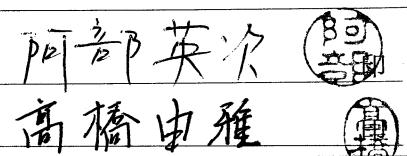 阿部英次 阿部
高橋由雅 高橋